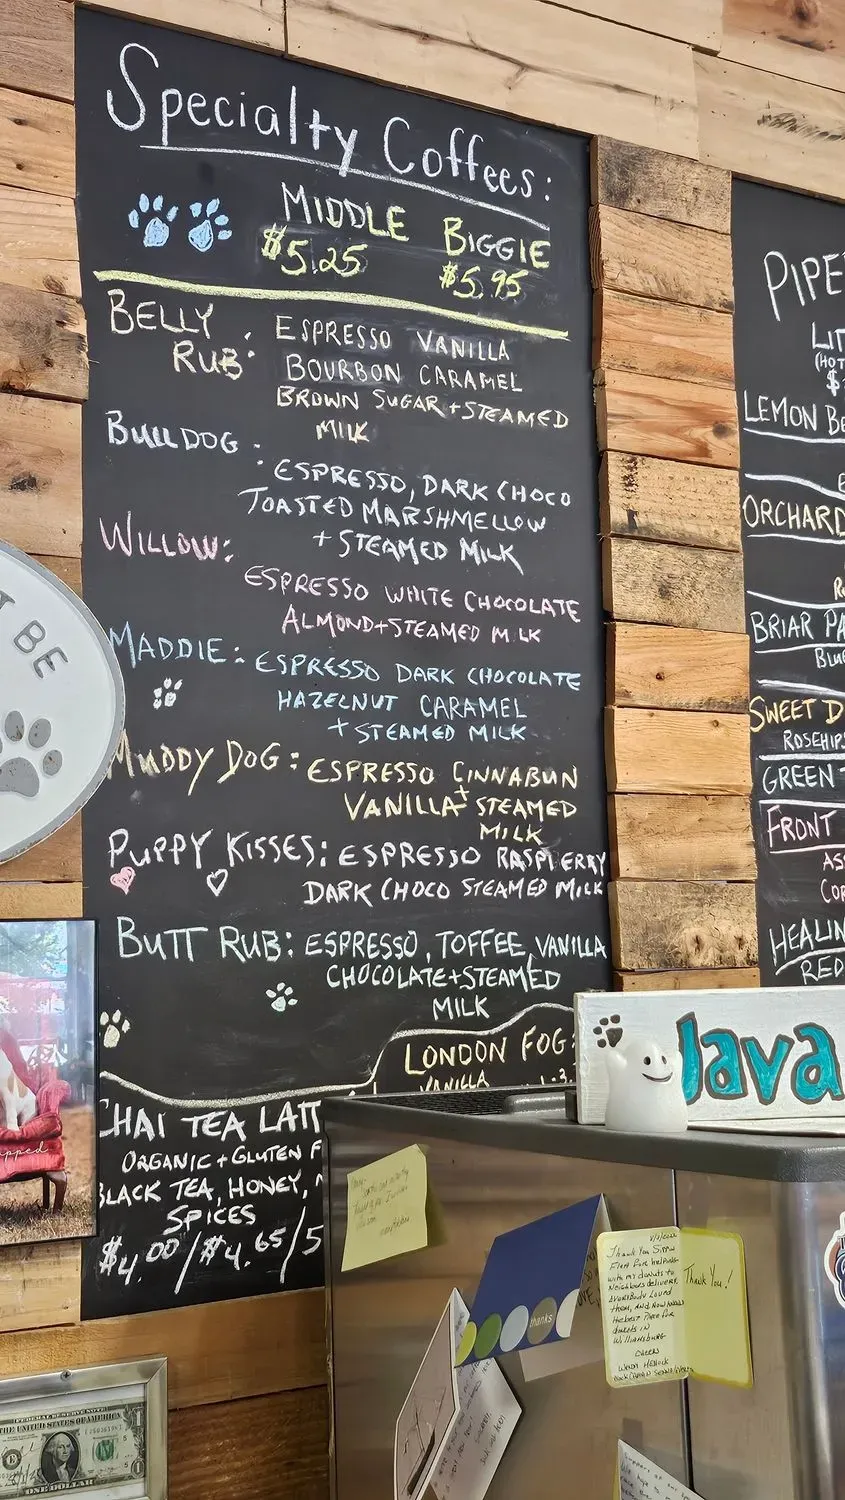 Specialty Coffees:
MIDDLE BIGGIE
$5.25 $5.95
BELLY RUB: ESPRESSO VANILLA
BOURBON CARAMEL
BROWN SUGAR + STEAMED
MILK
BULLDOG:
ESPRESSO, DARK CHOCO
TOASTED MARSHMELLOW
+ STEAMED MILK
WILLOW:
ESPRESSO WHITE CHOCOLATE
ALMOND + STEAMED MILK
MADDIE: ESPRESSO DARK CHOCOLATE
HAZELNUT CARAMEL
+ STEAMED MILK
MUDDY DOG: ESPRESSO CINNABUN
VANILLA + STEAMED
MILK
PUPPY KISSES: ESPRESSO RASPBERRY
DARK CHOCO STEAMED MILK
BUTT RUB: ESPRESSO, TOFFEE, VANILLA
CHOCOLATE + STEAMED
MILK
LONDON FOG:
VANILLA
CHAI TEA LATT
ORGANIC + GLUTEN F
BLACK TEA, HONEY,
SPICES
$4.00 / $4.65 / 5
PIPE
LIT
(HOT
$
LEMON BE
ORCHARD
BRIAR PA
BLUE
SWEET D
ROSEHIPS
GREEN
FRONT
ASS
COR
HEALIN
RED
T BE
Java
pped
thanks
Thank You Sipp'n
Thank You!
with my donuts to
Neighbors delivery.
Everybody Loved
them, And now known
the best Place for
donuts in
Williamsburg
FEDERAL RESERVE NOTE
THE UNITED STATES OF AMERICA
ONE DOLLAR